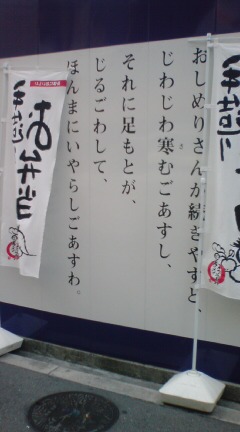 おしめりさんが続きやすと、
じわじわ寒むごあすし、
それに足もとが、
じるごわして、
ほんまにいやらしごあすわ。
手造り
お弁当
手造り